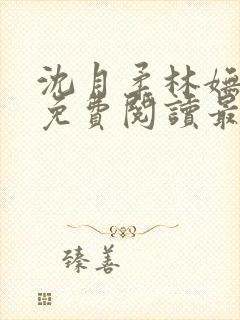 沈自柔林嫵
免費閱讀最
臻善